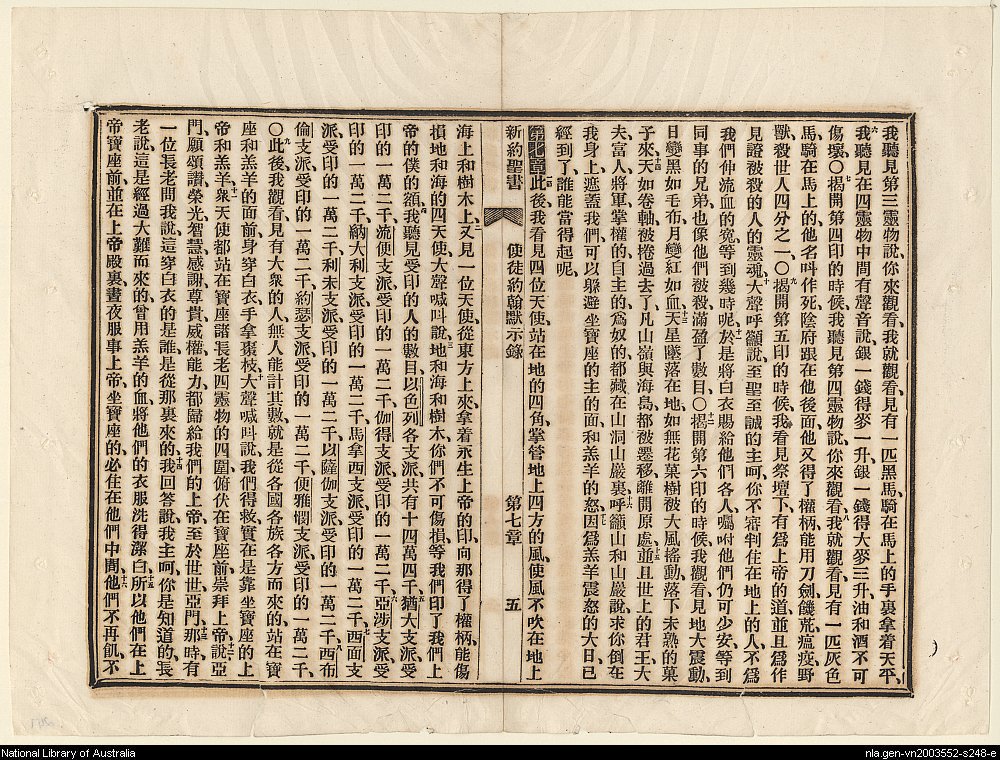 我聽見第三靈物說、你來觀看、我就觀看、見有一匹黑馬、騎在馬上的手裏拿着天平、
六我聽見在四靈物中間有聲音說、銀一錢得麥一升、銀一錢得大麥三升、油和酒不可
傷壞、〇七揭開第四印的時候、我聽見第四靈物說、你來觀看、八我就觀看、見有一匹灰色
馬、騎在馬上的他名叫作死、陰府跟在他後面、他又得了權柄、能用刀劍饑荒瘟疫野
獸殺世人四分之一、〇九揭開第五印的時候、我看見祭壇下、有爲上帝的道、並且爲作
見證被殺的人的靈魂、十大聲呼籲說、至聖至誠的主呵、你不審判住在地上的人、不爲
我們伸流血的寃、等到幾時呢、十一於是將白衣賜給他們各人、囑咐他們仍可少安、等到
同事的兄弟也像他們被殺滿盈了數目、〇十二揭開第六印的時候、我觀看、見地大震動、
日變黑如毛布、月變紅如血、十三天星墜落在地、如無花菓樹被大風搖動、落下未熟的菓
子來、十四天如卷軸被捲過去了、凡山嶺與海島都被遷移、離開原處、十五並且世上的君王大
夫富人將軍掌權的自主的爲奴的、都藏在山洞山巖裏、十六呼籲山和山巖說、求你倒在
我身上遮蓋我們、可以躱避坐寶座的主的面、和羔羊的怒、十七因爲羔羊震怒的大日、已
經到了、誰能當得起呢、
第七章一此後我看見四位天使站在地的四角、掌管地上四方的風、使風不吹在地上
新約聖書 使徒約翰默示錄 第七章 五
海上和樹木上、二又見一位天使從東方上來、拿着永生上帝的印、向那得了權柄、能傷
損地和海的四天使大聲喊叫說、三地和海和樹木你們不可傷損、等我們印了我們上
帝的僕的額、四我聽見受印的人的數目、以色列各支派、共有十四萬四千、五猶大支派受
印的一萬二千、流便支派受印的一萬二千、伽得支派受印的一萬二千、六亞涉支派受
印的一萬二千、納大利支派受印的一萬二千、馬拿西支派受印的一萬二千、七西面支
派受印的一萬二千、利未支派受印的一萬二千、以薩伽支派受印的一萬二千、八西布
倫支派受印的一萬二千、約瑟支派受印的一萬二千、便雅憫支派受印的一萬二千、
〇九此後我觀看、見有大衆的人、無人能計其數、就是從各國各族各方而來的、站在寶
座和羔羊的面前、身穿白衣、手拿棗枝、十大聲喊叫說、我們得救實在是靠坐寶座的上
帝和羔羊、十一衆天使都站在寶座諸長老四靈物的四圍、俯伏在寶座前、崇拜上帝、十二說、亞
門、願頌讚榮光智慧感謝尊貴威權能力、都歸給我們的上帝、至於世世、亞門、十三那時有
一位長老問我說、這穿白衣的是誰、是從那裏來的、十四我回答說、我主呵、你是知道的、長
老說、這是經過大難而來的、曾用羔羊的血、將他們的衣服洗得潔白、十五所以他們在上
帝寶座前、並在上帝殿裏晝夜服事上帝、坐寶座的必住在他們中間、十六他們不再飢、不
National Library of Australia
nla.gen-vn2003552-s248-e